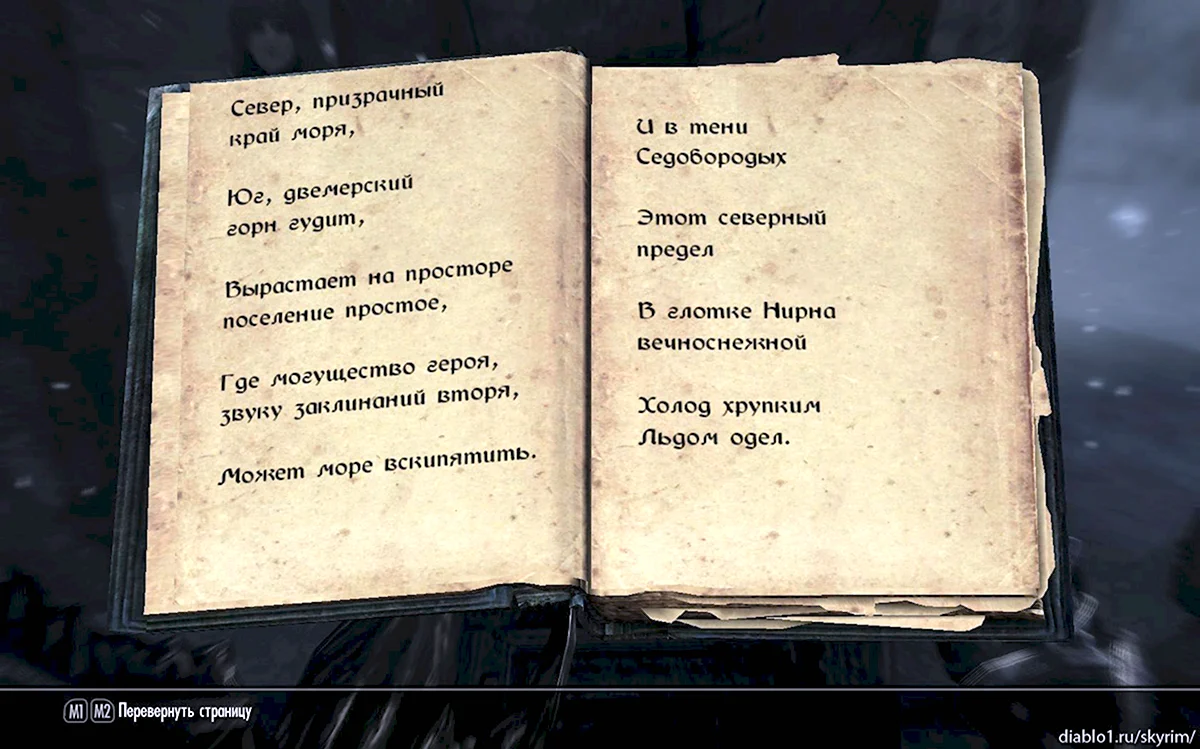 Север, призрачный
край моря,
Юг, двемерский
горн гудит,
Вырастает на просторе
поселение простое,
Где могущество героя,
звуку заклинаний вторя,
Может море вскипятить.
И в тени
Седобородых
Этот северный
предел
В глотке Нирна
вечноснежной
Холод хрупким
Льдом одел.
M1 M2 Перевернуть страницу
diablo1.ru/skyrim/